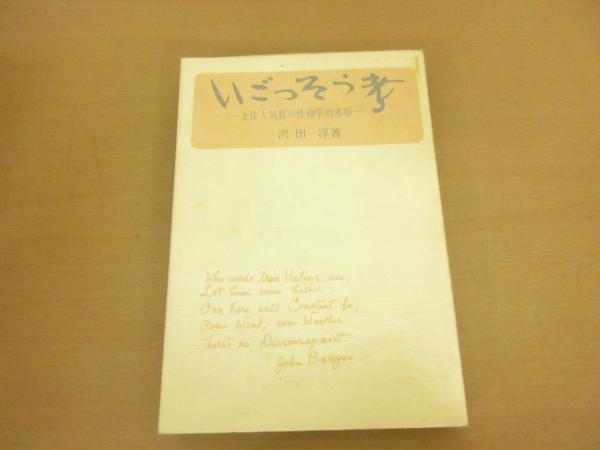 いごっそう考
—土佐人気質の性格学的考察—
沢田 淳著
Who would true Valour see
Let him come hither;
One here will Constant be,
Come Wind, come Weather
There's no Discouragement
John Bunyan